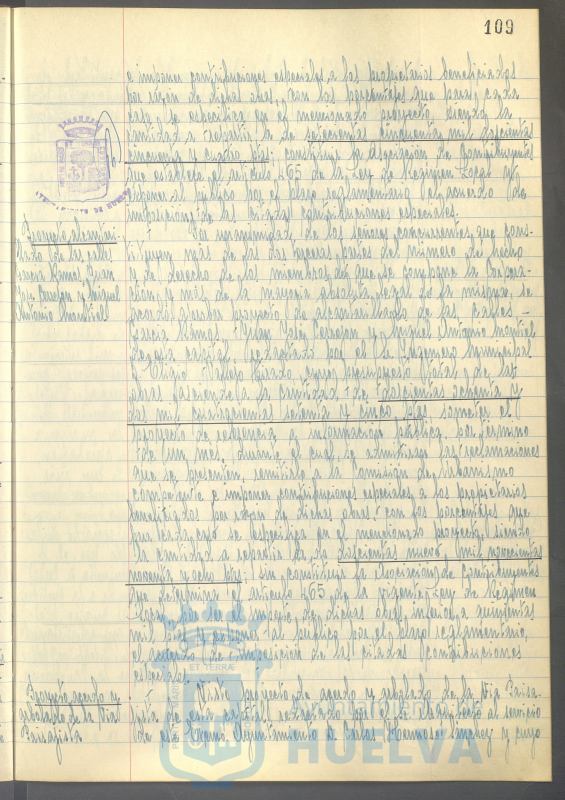 109
e imponer contribuciones especiales a los propietarios beneficiados
por razón de dichas obras, con los porcentajes que para cada
caso se especifica en el mencionado proyecto, siendo la
cantidad a repartir la de setecientas cincuenta mil doscientas
cincuenta y cuatro ptas; constituir la Asociación de Contribuyentes
que establece el artículo 465 de la Ley de Régimen Local y
exponer al público por el plazo reglamentario el acuerdo de
imposición de las citadas contribuciones especiales.
AYUNTAMIENTO DE HUELVA
Proyecto alcantari-
llado de las calles
García Ramos, Juan
José Cerrejón y Miguel
Antonio Montiel
Por unanimidad de los señores concurrentes que cons-
tituyen más de las dos terceras partes del número de hecho
y de derecho de los miembros de que se compone la Corpora-
ción y más de la mayoría absoluta legal de la misma, se
acordó aprobar proyecto de alcantarillado de las calles
García Ramos, Juan José Cerrejón y Miguel Antonio Montiel
de esta capital, redactado por el Sr. Ingeniero Municipal
cuyo presupuesto total de las
obras asciende a la cantidad de doscientas ochenta y
dos mil cuatrocientas setenta y cinco ptas someter el
proyecto de referencia a información pública, por término
de un mes, durante el cual, se admitirán las reclamaciones
que se presenten, remitirlo a la Comisión de Urbanismo
competente e imponer contribuciones especiales a los propietarios
beneficiados por razón de dichas obras con los porcentajes que
para cada caso se especifica en el mencionado proyecto, siendo
la cantidad a repartir la de doscientas nueve mil novecientas
noventa y ocho ptas; sin constituir la Asociación de Contribuyentes
que determina el artículo 465 de la vigente Ley de Régimen
Local, por ser el importe de dichas obras inferior a quinientas
mil ptas y exponer al público por el plazo reglamentario,
el acuerdo de imposición de las citadas contribuciones
especiales.
Proyecto acerado y
arbolado de la Vía
Paisajista
Visto proyecto de acerado y arbolado de la Vía Paisa-
jista de esta capital redactado por el Sr. Arquitecto al servicio
de este Excmo. Ayuntamiento D. Carlos Hermoso Sánchez y cuyo
ET TERRAE
Ayuntamiento de
HUELVA